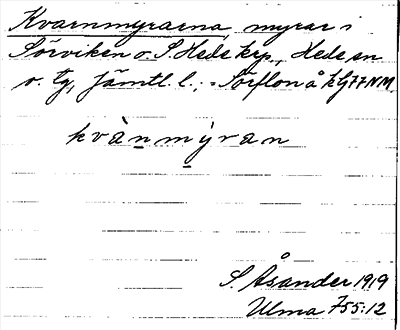 Kvarnmyrarna, myrar i
Sörviken o. S Hede krp., Hede sn
o. tg, Jämtl. l., - Sörflon å kG77NM
kvànmýran
S. Åsander 1919
Ulma 755:12